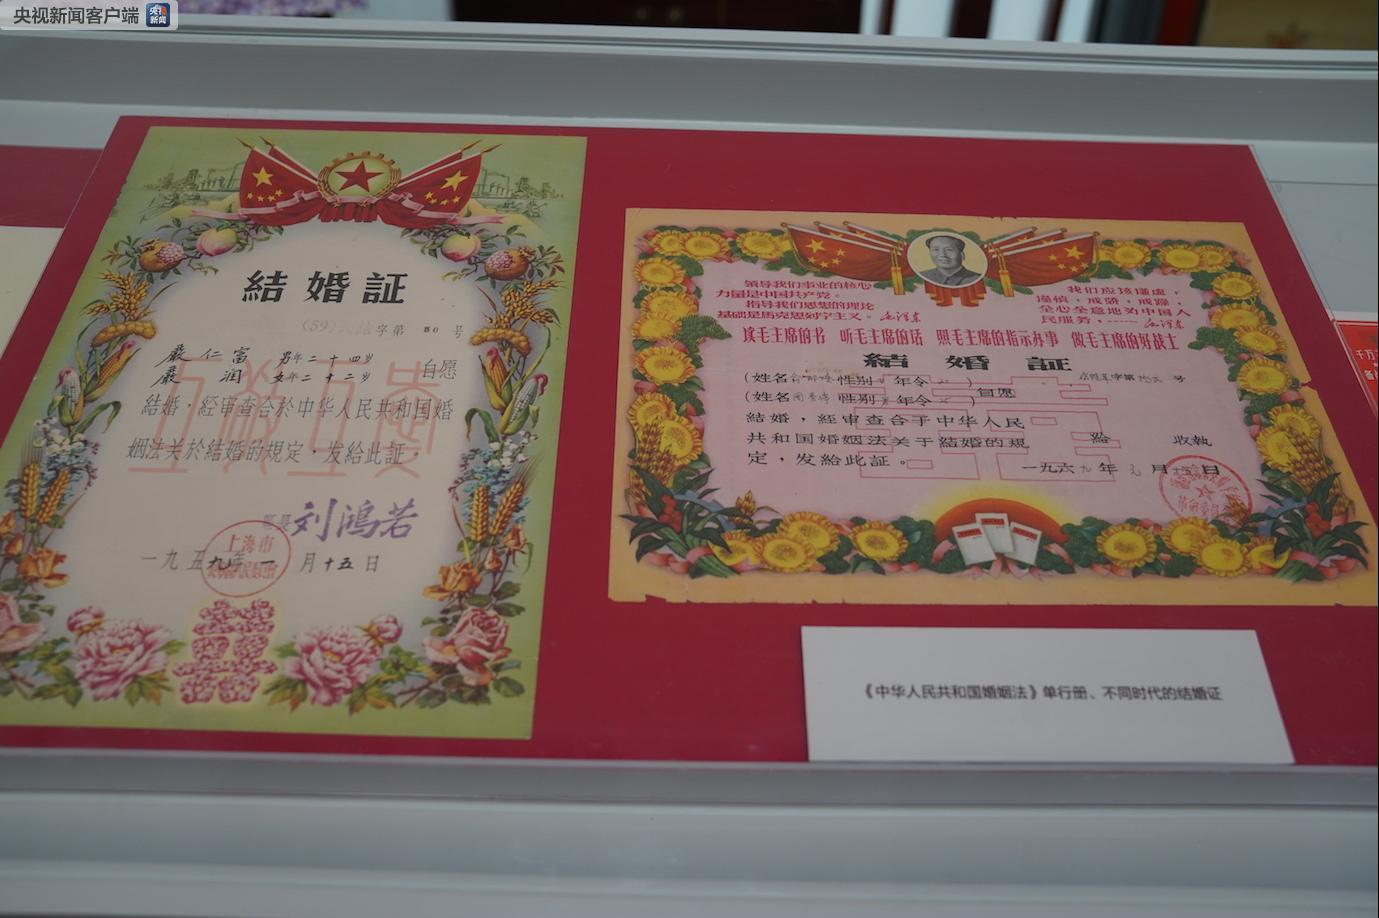 央视新闻客户端
央视新闻
結婚証
(59)
字第 80 号
嚴仁富 男年二十四岁
嚴润 女年二十二岁
自愿
結婚，經审查合於中华人民共和国婚
姻法关於結婚的規定，发給此証。
刘鴻若
上海市
一九五九年 月十五日
囍
領导我們事业的核心
力量是中国共产党。
指导我們思想的理論
基础是馬克思列宁主义。毛泽东
我们应该谦虚，
謹慎，戒骄，戒躁，
全心全意地为中国人
民服务，…… 毛泽东
读毛主席的书 听毛主席的话 照毛主席的指示办事 做毛主席的好战士
結婚証
(姓名 性别 年令 )
字第 号
(姓名 性别 年令 )
自愿
結婚，經审查合于中华人民
共和国婚姻法关于結婚的規
定，发給此証。
給 收执
一九六九年元月十五日
《中华人民共和国婚姻法》单行册、不同时代的结婚证
千万